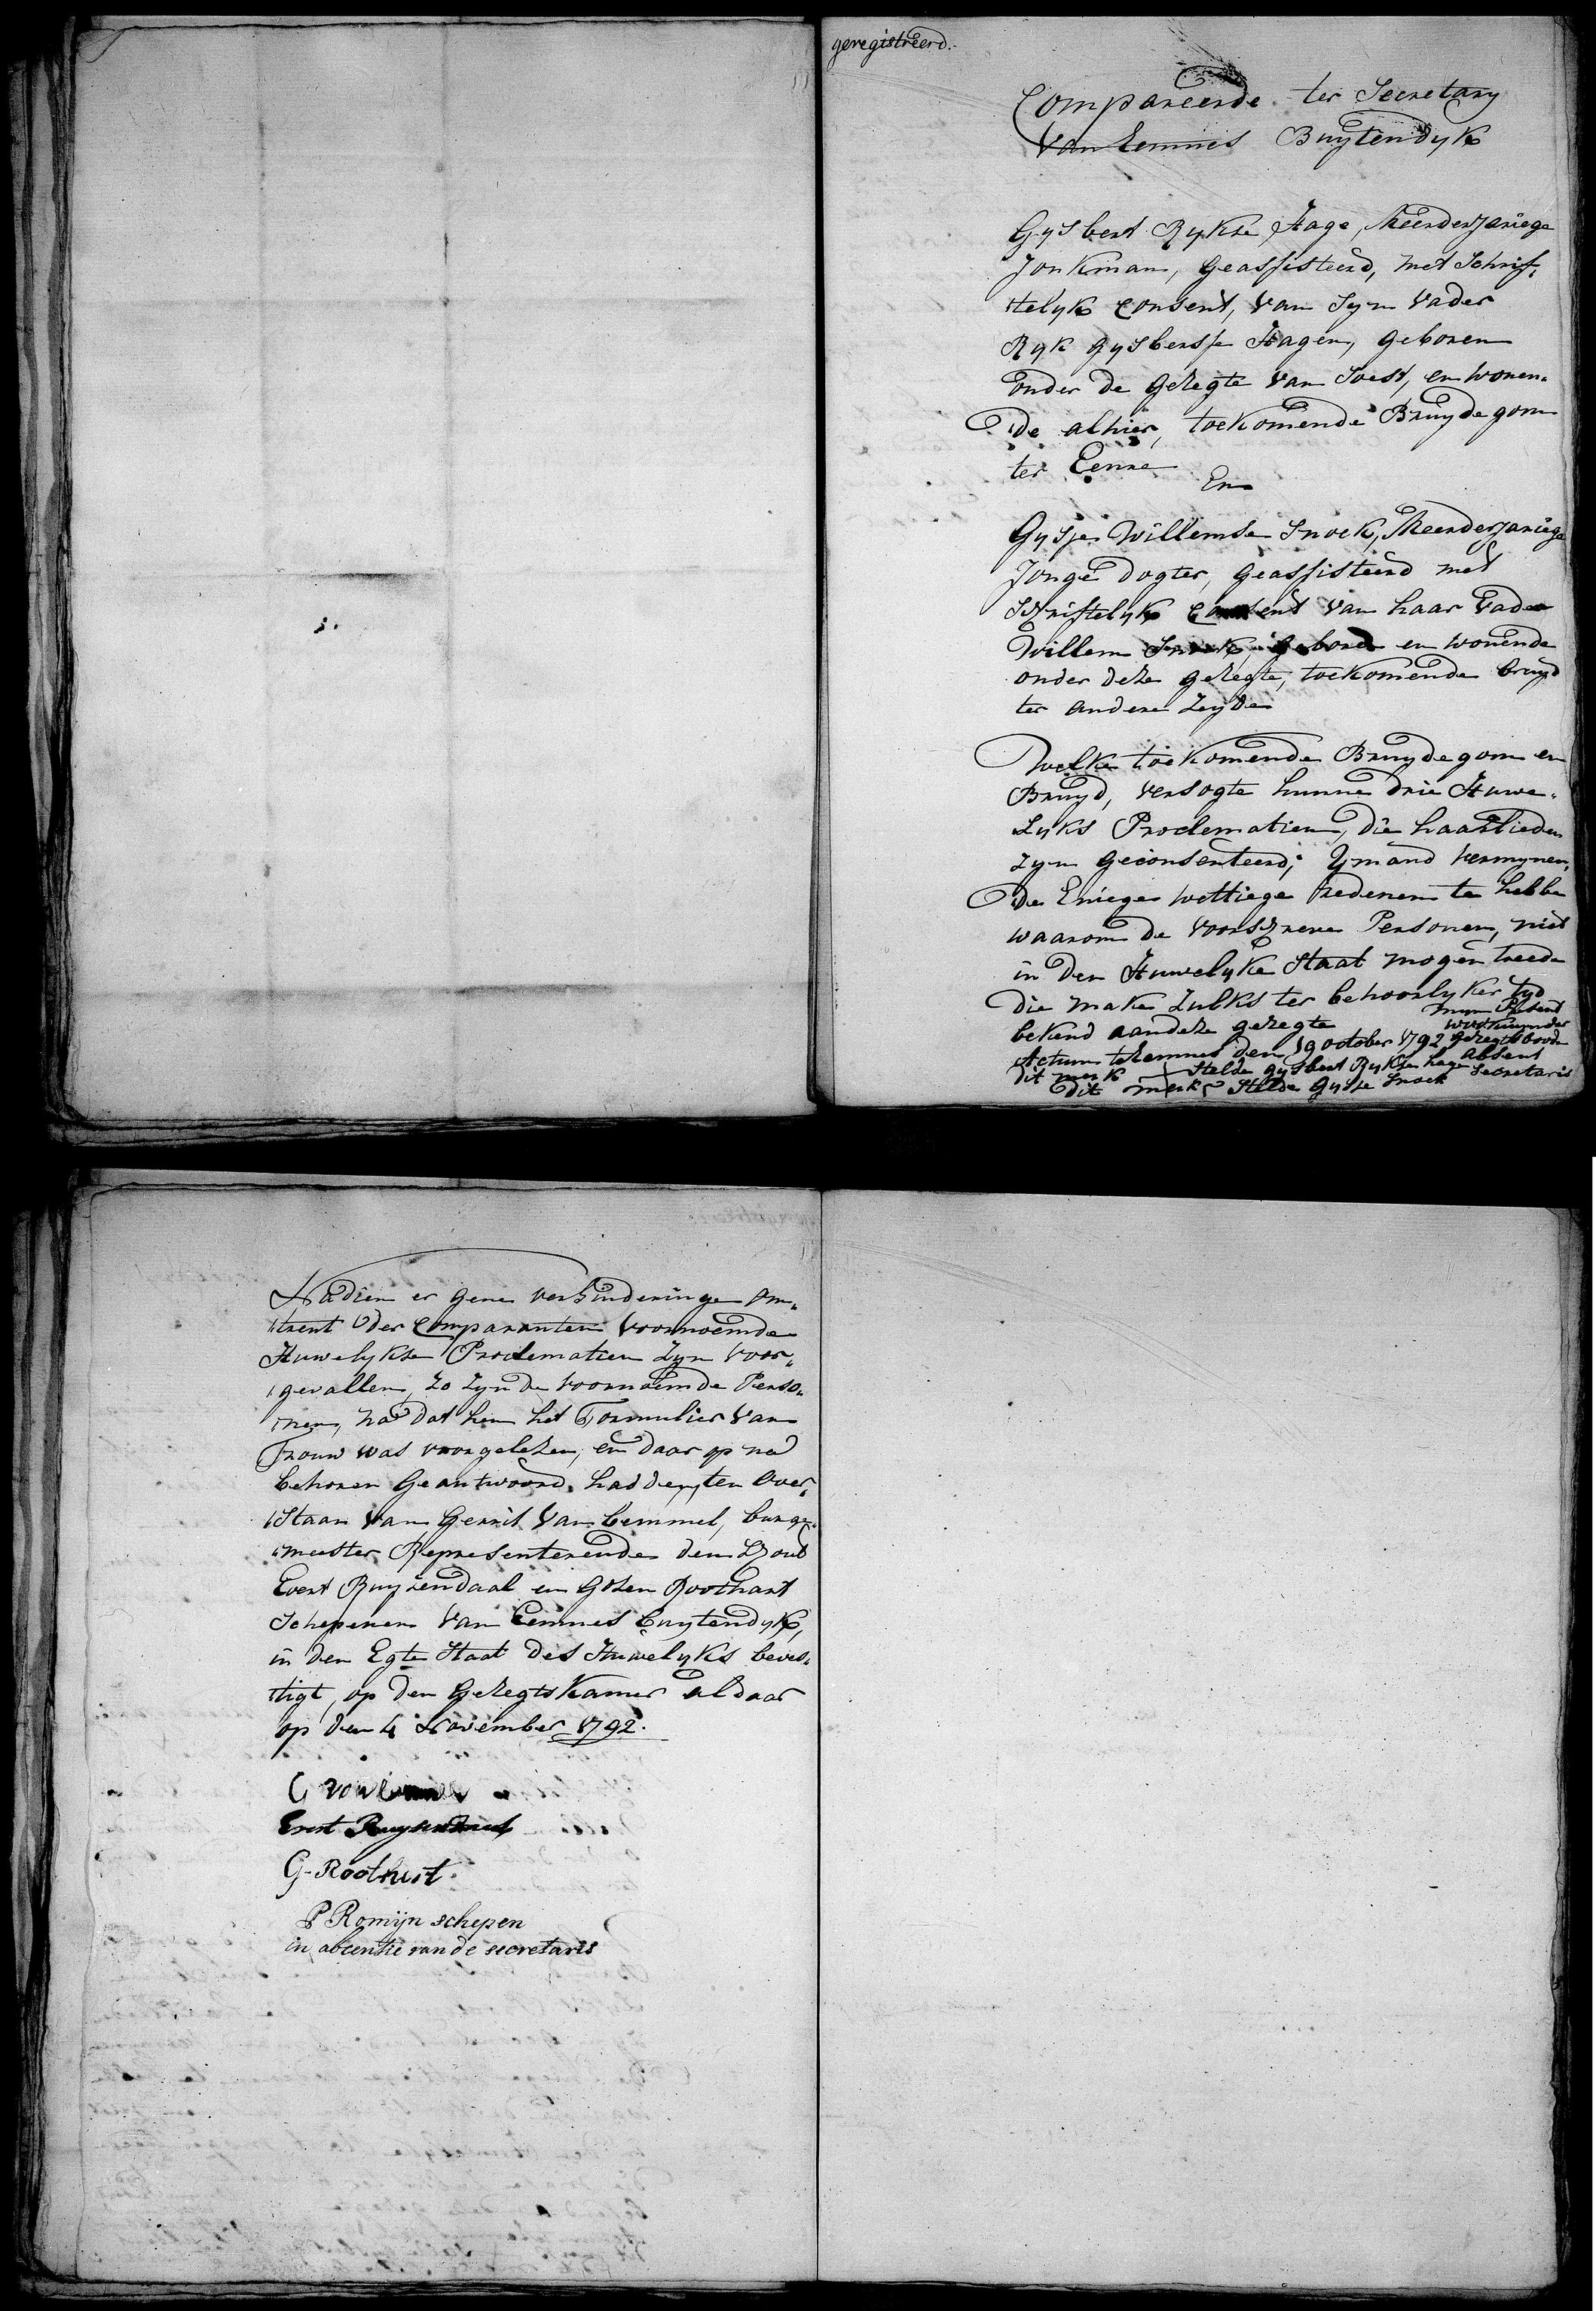 geregistreerd.
Compareerde ter Secretary
Van Eemnes Buytendyk
Gysbert Rykse Hage, Meerderjariege
Jonkman, geassisteerd, met Schrif,
telyk Consent, van Syn Vader
Ryk Gysbersse Hagen, geboren
onder de geregte van Soest, en wonen„
de alhier, toekomende Bruydegom
ter Eenre
En
Gysje Willemse Snoek, Meerderjariege
Jonge dogter, geassisteerd met
Schriftelyk Consent van haar Vader
Willem Snoek, geboren en wonende
onder deze geregte, toekomende bruyd
ter andere Zeyde
Welke toekomende Bruydegom en
Bruyd, versogte hunne drie Huwe„
Lyks Proclematien, die haarlieden
zyn geconsenteerd; Ymand vermynen,
de Eniege wettiege redenen te hebbe
waarom de voorschreve Personen, niet
in den Huwelyke Staat mogen treede
die make zulks ter behoorlyker tyd
bekend aan deze geregte
Actum t Eemnes den 19 october 1792
geregtsboode
absent
Secretaris
dit merk stelde gysbert Rykse hage
dit merk stelde Gysje Snoek
Nadien er gene verhinderinge om„
trent der Comparanten voornoemde
Huwelykse Proclematien zyn voor„
gevallen, zo zyn de voornoemde Perso„
nen, na dat hen het Formulier van
Trouw was voorgelezen, en daar op na
behoren geantwoord hadden, ten over„
staan van Gerrit van bemmel, burge„
meester Representerende den Schout
Evert Ruyzendaal en Gosen Roothart
Schepenen van Eemnes buytendyk,
in den Egte Staat des Huwelyks beves„
tigt, op den Geregts Kamer aldaar
op den 4 November 1792.
G van bemmel
Evert Ruysendaal
G. Roothart
P Romijn schepen
in absentie van de secretaris